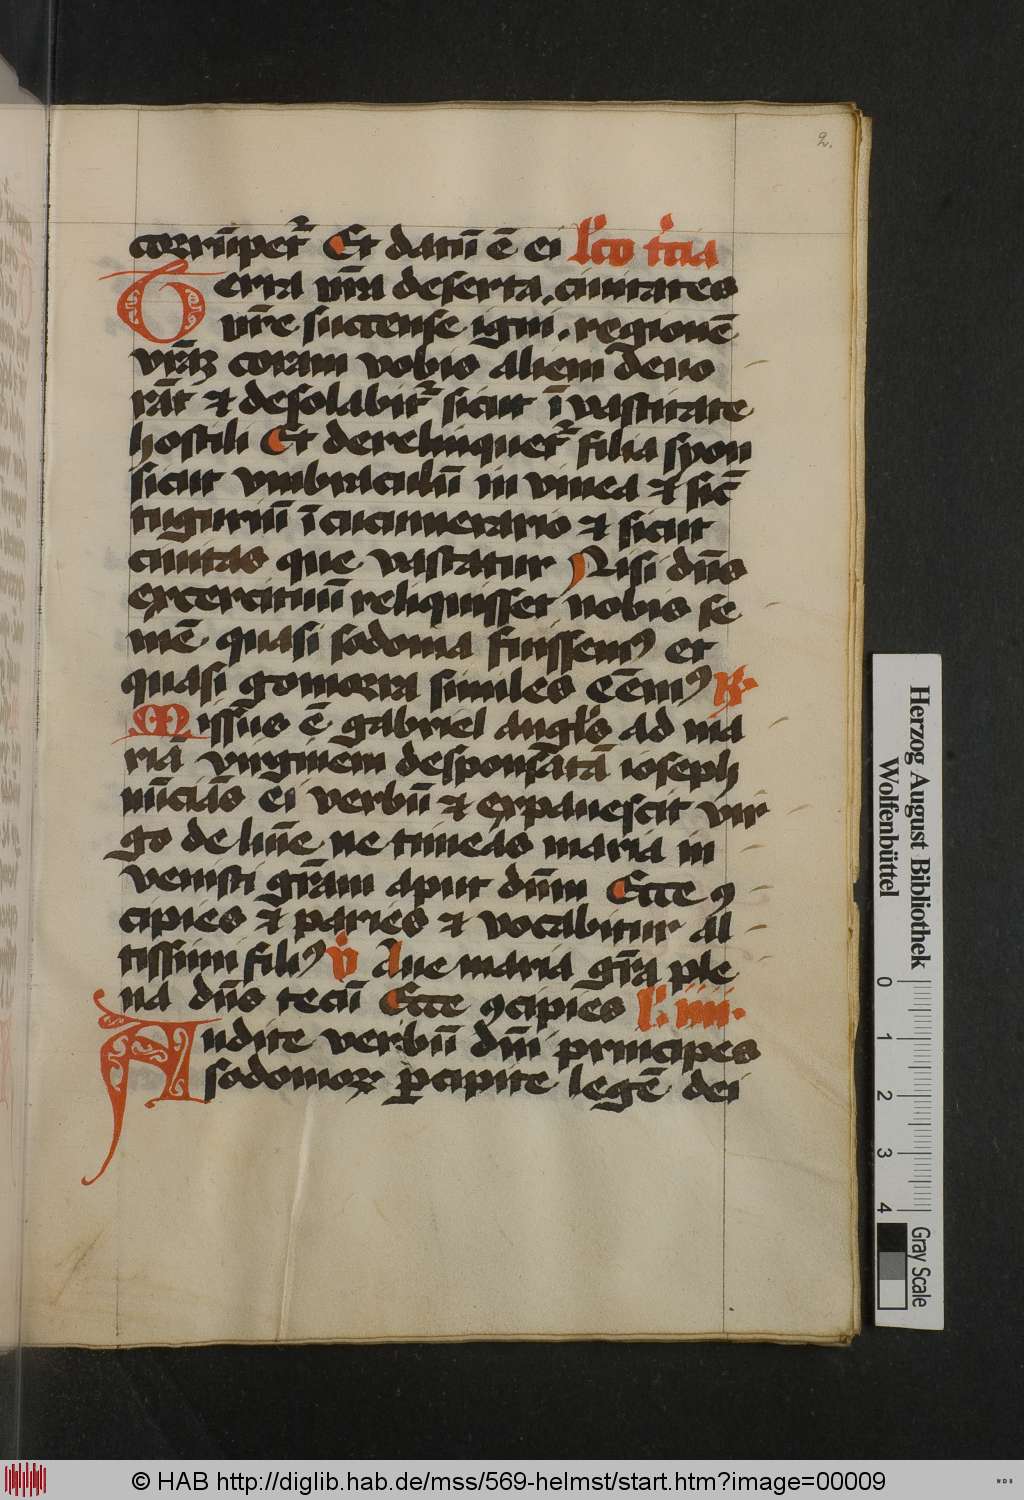 2.
corrūpet᷑ Et datū ē ei lc̄o tc̄ia
Terra vr̄a deserta. ciuitates
vr̄e succense igni. regionē
vr̄aꝫ coram vobis alieni deuo
rāt ⁊ desolabit᷑ sicut ī vastitate
hostili Et derelinquet᷑ filia syon
sicut vmbraculū in vinea ⁊ sic̄
tuguriū ī cucumerario ⁊ sicut
ciuitas que vastatur Nisi dn̄s
exercituū reliquisset nobis se
mē quasi sodoma fuissemꝰ et
quasi gomorra similes eēmꝰ R.
Missus ē gabriel angl̄s ad ma
riā virginem desponsatā ioseph
nūciās ei verbū ⁊ expauescit vir
go de lūīe ne timeas maria in
venisti gr̄am aput dn̄m Ecce ꝯ
cipies ⁊ paries ⁊ vocabitur al
tissimi filiꝰ v̄ Aue maria gr̄a ple
na dn̄s tecū Ecce ꝯcipies l. iiii.
Audite verbū dn̄i principes
sodomoꝝ ꝑcipite legē dei
Herzog August Bibliothek
Wolfenbüttel
0 1 2 3 4
Gray Scale
© HAB http://diglib.hab.de/mss/569-helmst/start.htm?image=00009